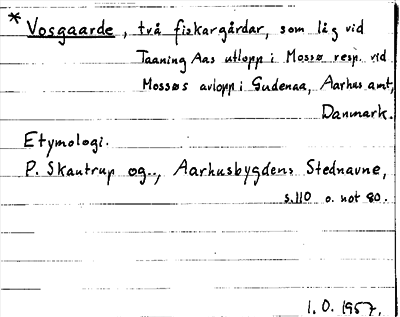 * Vosgaarde, två fiskargårdar, som låg vid
Taaning Aas utlopp i Mossø resp. vid
Mossøs avlopp i Gudenaa, Aarhus amt,
Danmark.
Etymologi.
P. Skautrup og.., Aarhusbygdens Stednavne,
s.110 o. not 80.
1.O. 1957.